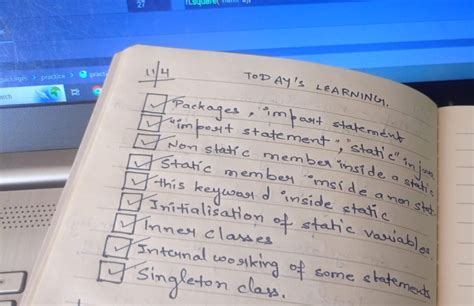 27
packages > practice > practi
arch
11/4 TODAY'S LEARNING.
Packages, "import statement
"import statement, "static" in java
Non static member inside a static
Static member inside a non stat
this keyword inside static
Initialisation of static variables
Inner classes
Internal working of some statements
Singleton class.